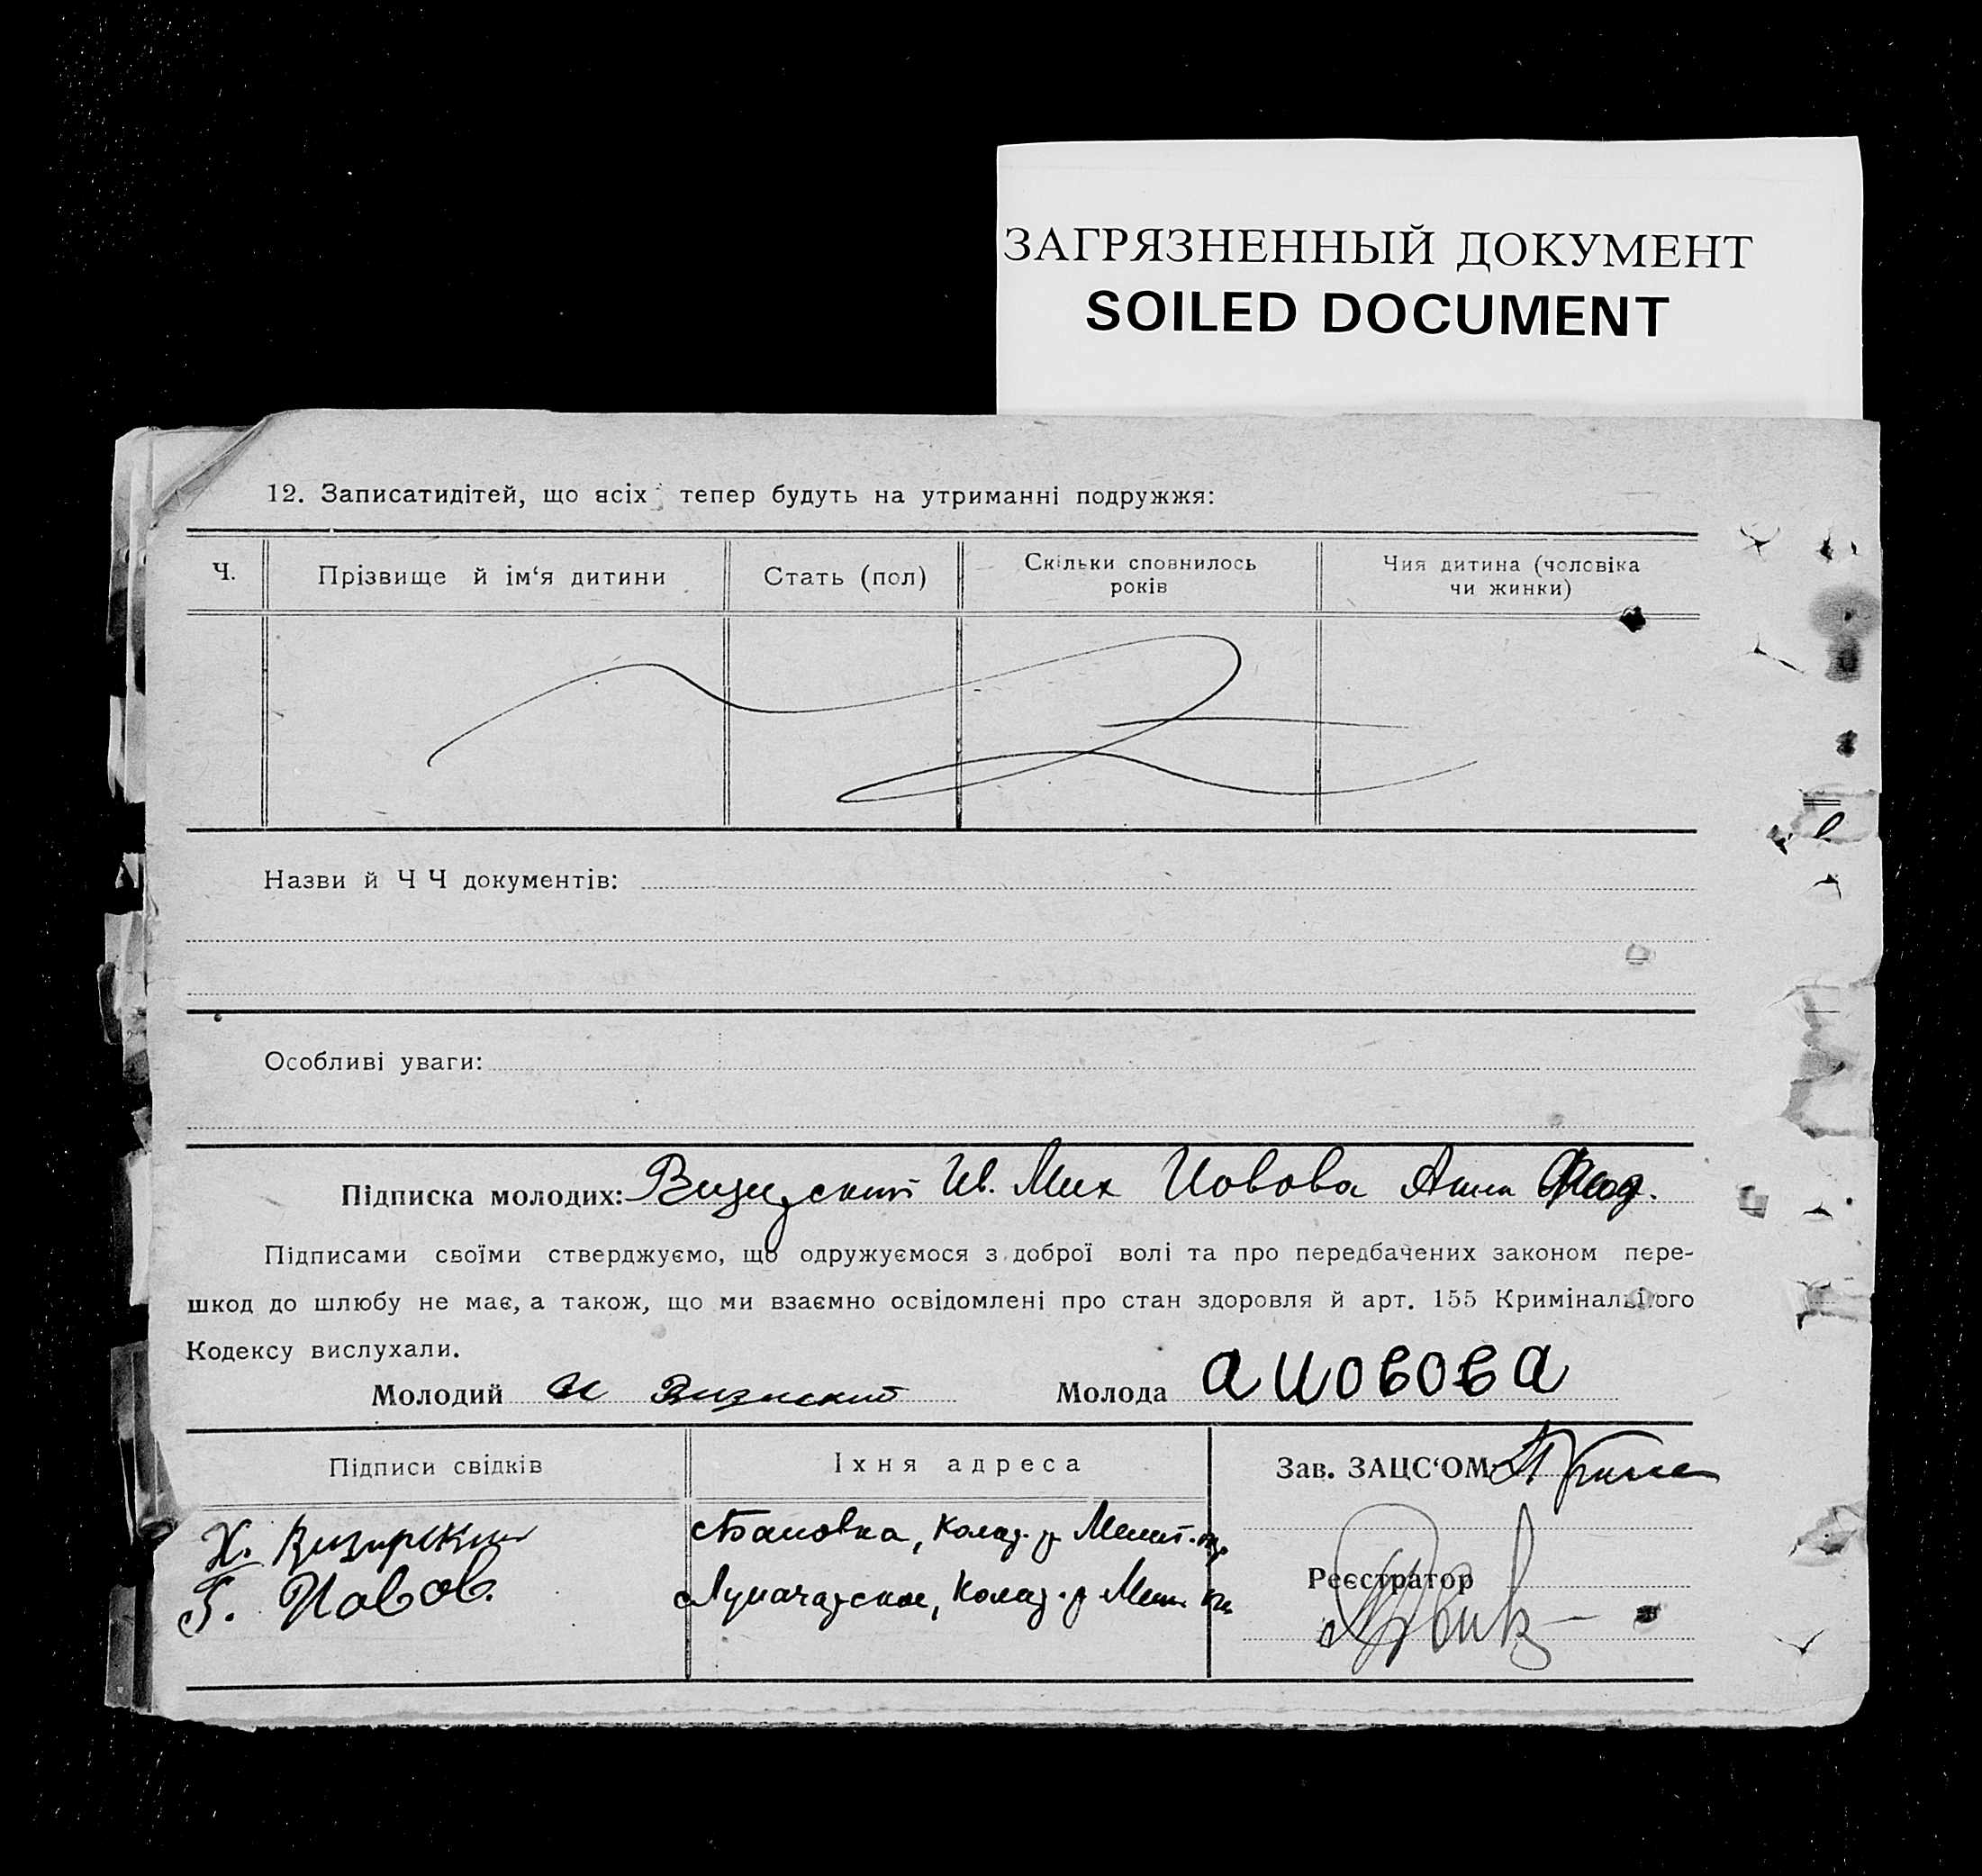 ЗАГРЯЗНЕННЫЙ ДОКУМЕНТ
SOILED DOCUMENT
12. Записатидітей, що всіх тепер будуть на утриманні подружжя:
Ч. Прізвище й ім‘я дитини Стать (пол) Скільки сповнилось років Чия дитина (чоловіка чи жинки)
Назви й Ч Ч документів:
Особливі уваги:
Підписка молодих: Ив. Мих Иовова Анна Феод.
Підписами своїми стверджуємо, що одружуємося з доброї волі та про передбачених законом пере-
шкод до шлюбу не має, а також, що ми взаємно освідомлені про стан здоровля й арт. 155 Кримінального
Кодексу вислухали.
Молодий И Молода а иовова
Підписи свідків Їхня адреса Зав. ЗАЦС‘ОМ
Х. Визирский Бановка,
Г. Иовов.
Реєстратор